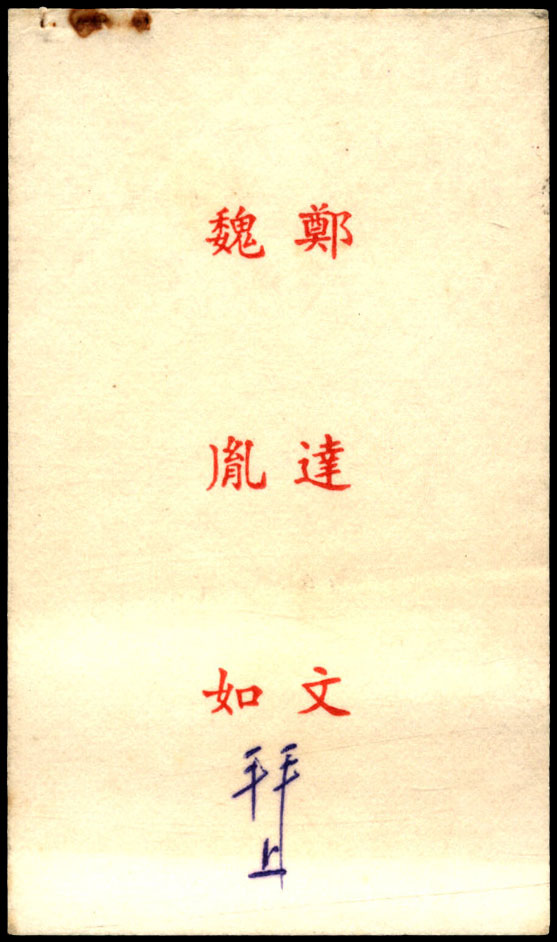 鄭達文
魏胤如
拜上